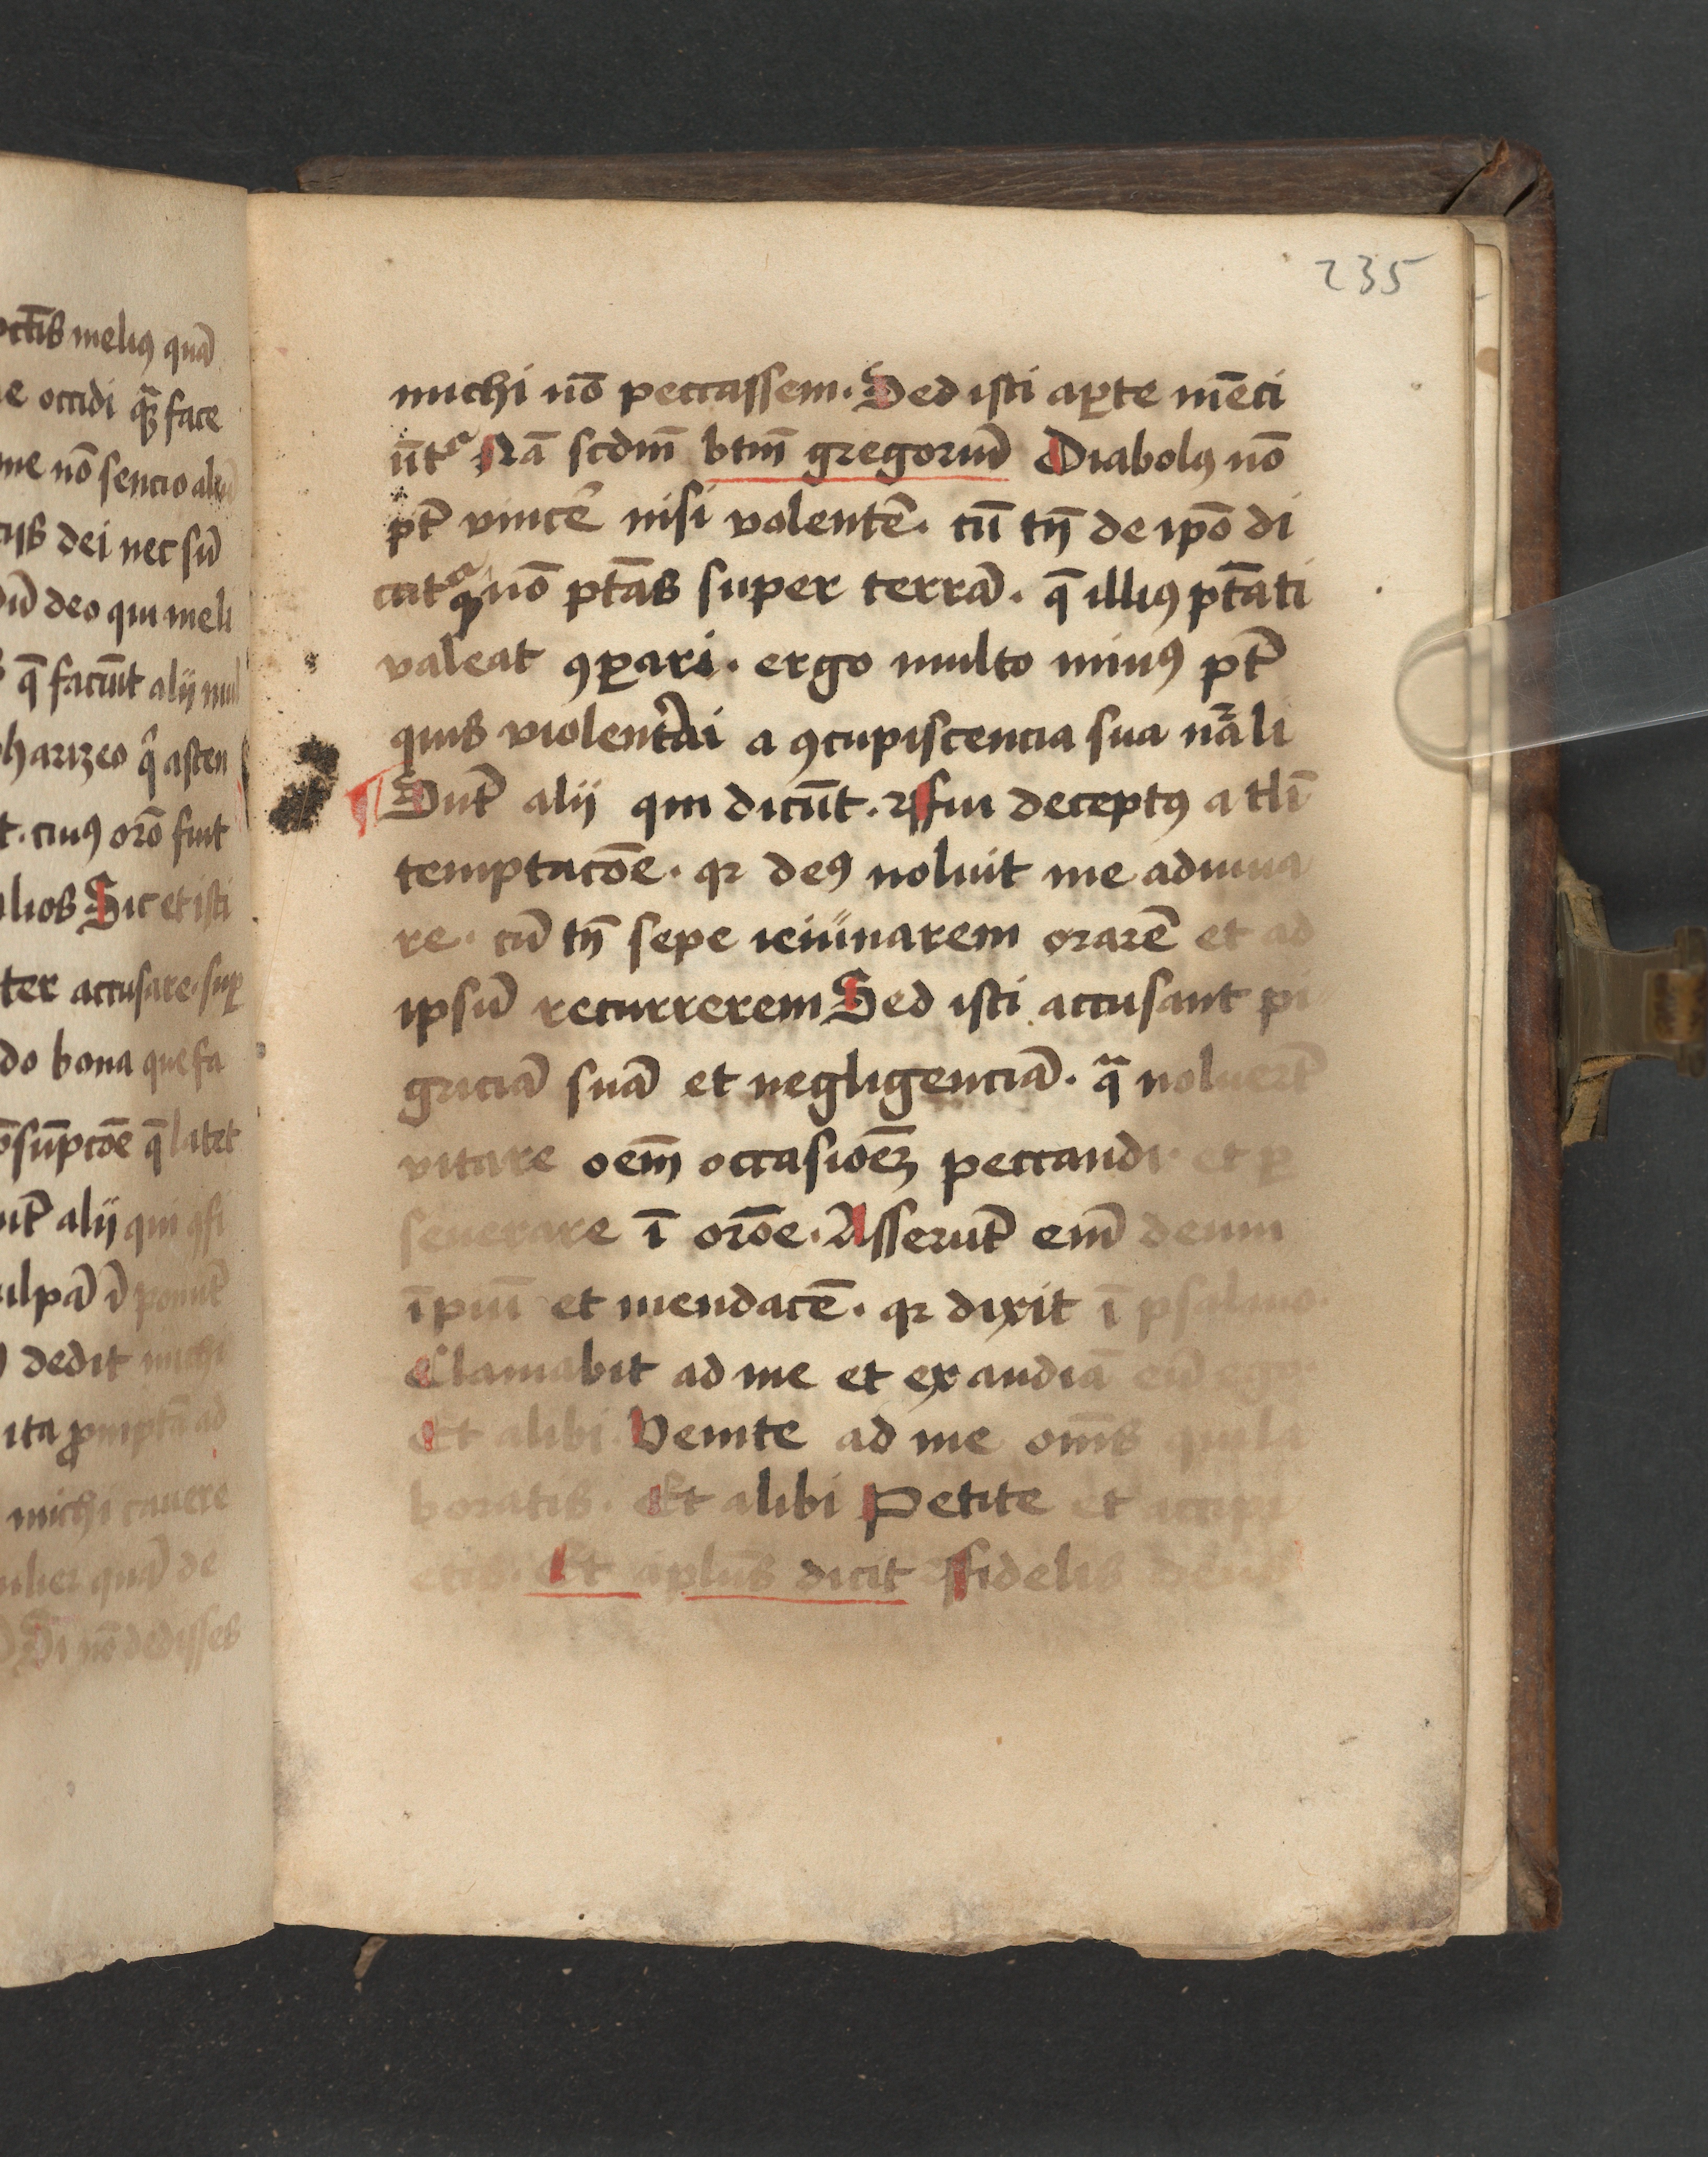 ctīs meliꝯ quā
e occidi qꝫ face
me nō sencio aliū
cijs dei nec sū
ū deo qui meli
q̄ faciūt alij mul
harizeo q̄ asten
t. cuiꝯ orō fuit
lios Sic et isti
ter accusare. sup̱
do bona que fa
sūpcōe q̄ latet
ūt alij qui ꝯfi
ulpā ī ponūt
dedit michi
ita ꝓmptā ad
michi cauere
ulier quā de
Si nō dedisses
235
michi nō peccassem. Sed isti ap̱te mēci
ūtᵃ Nā scdm̄ btm̄ gregoriū Diabolꝯ nō
pt̄ vincē nisi volentē. cū tn̄ de ip̄o di
catᵃ qꝫ nō ptās super terrā. q̄ illiꝯ ptāti
valeat ꝯp̱ari. ergo multo minꝯ pt̄
quis violentāi a ꝯcupiscencia sua nāli
Sūt alij qui dicūt. ꝛ fui deceptꝯ a tli
temptacōe. qꝛ deꝯ noluit me adiuua
re. cū tn̄ sepe ieiūnarem orarē et ad
ipsū recurrerem Sed isti accusant pi
griciā suā et negligenciā. q̄ noluert̄
vitare oēm occasioēꝫ peccandi. et p̱
seuerare ī orōe. Asserūt em̄ deum
īpiū et mendacē. qꝛ dixit ī psalmo.
Clamabit ad me et ex audiā eū ego
Et alibi Venite ad me om̄s qui la
boratis. Et alibi Petite et accipi
etis. Et aplūs dicit ꝛ fidelis deus